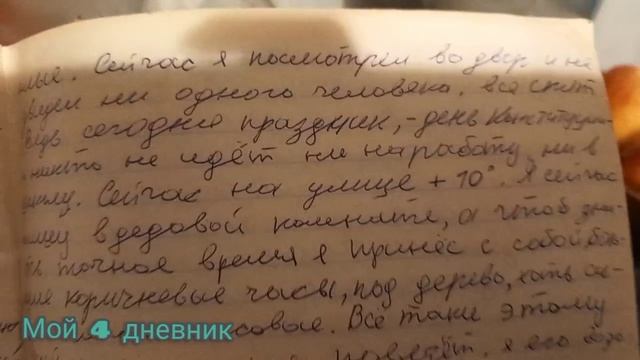 Сейчас я посмотрел во двор и не
ни одного человека. Все спят
сегодня праздник, - день Конституции
никто не идёт ни на работу, ни в
школу. Сейчас на улице + 10°. Я сейчас
в дедовой комнате, а чтоб
точное время я принёс с собой
коричневые часы, под дерево, хоть
Всё таки этому
я его
Мой 4 дневник